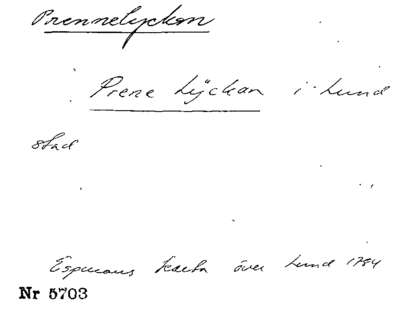 Prennelyckan
Prene Lÿckan i Lund
stad
Espmans karta över Lund 1784
Nr 5703